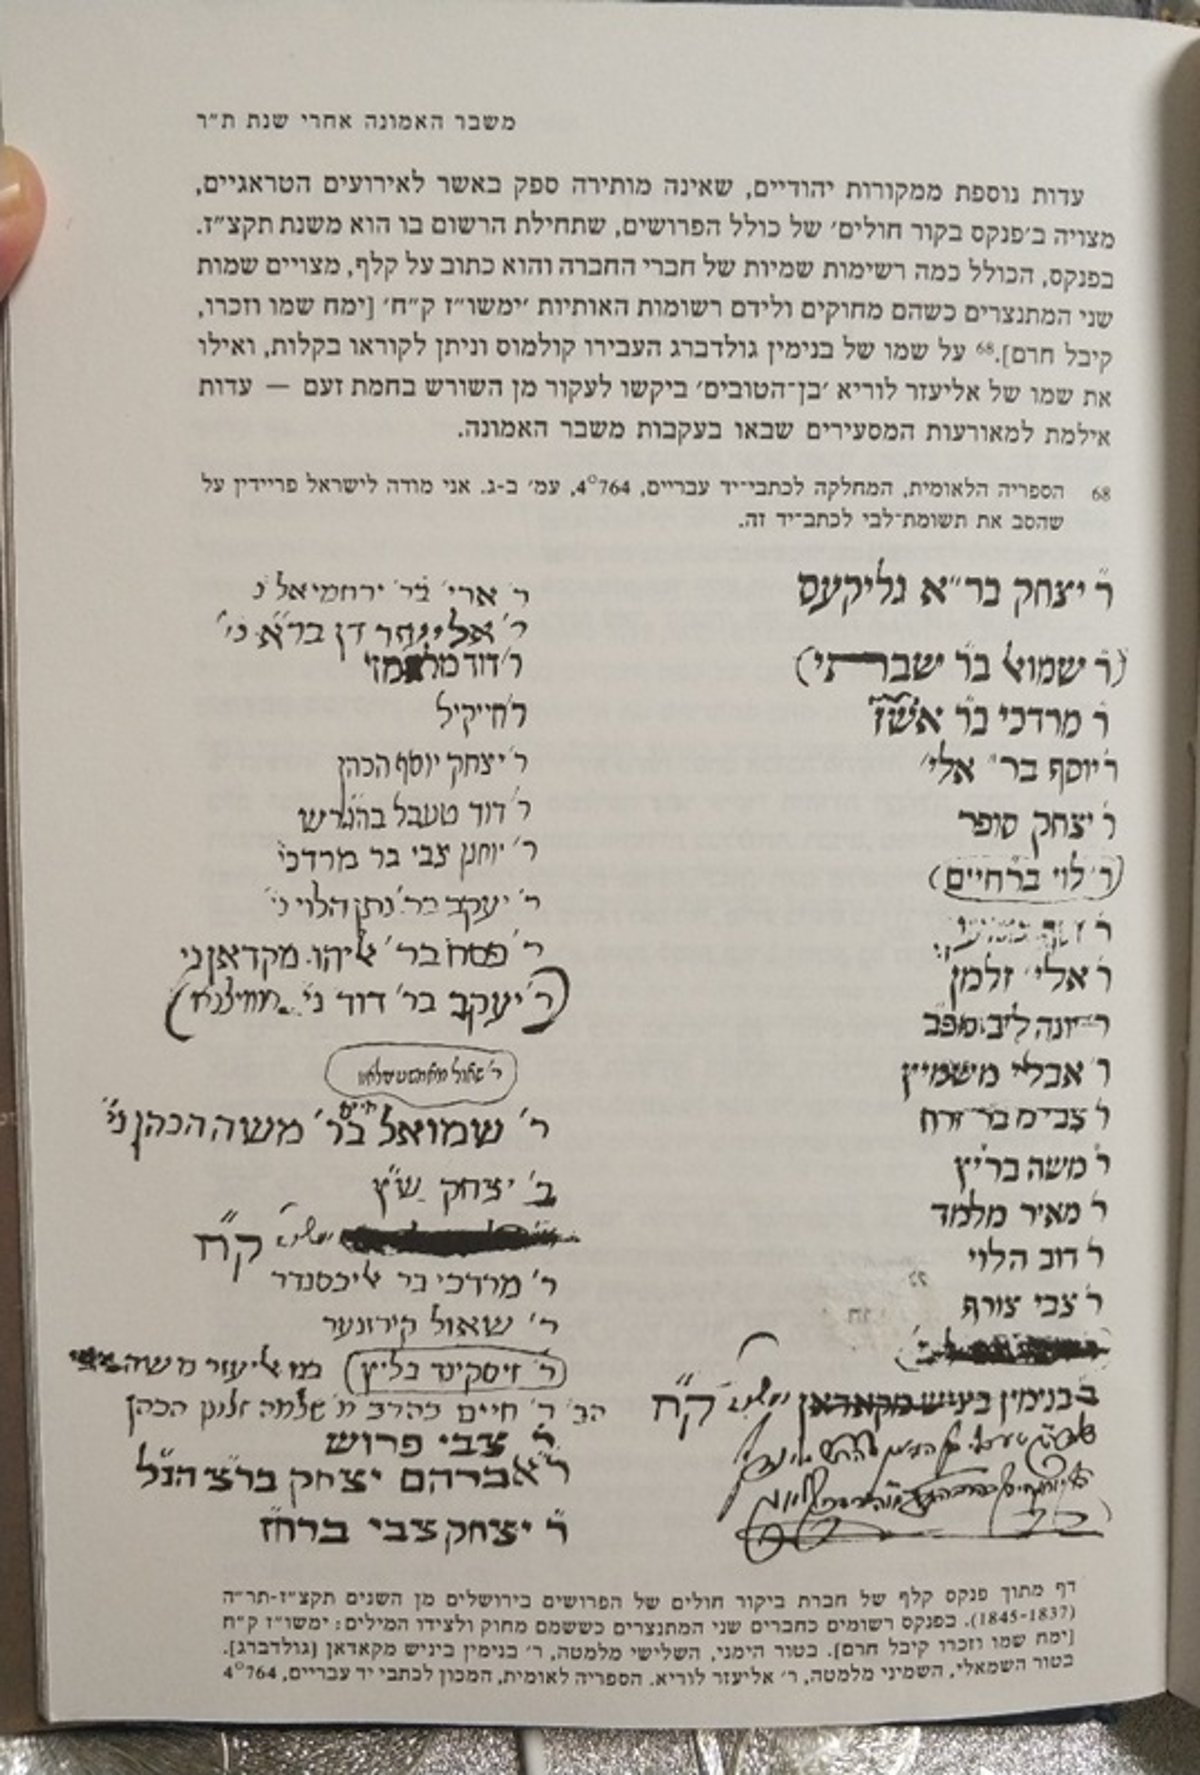 משבר האמונה אחרי שנת ת״ר
עדות נוספת ממקורות יהודיים, שאינה מותירה ספק באשר לאירועים הטראגיים,
מצויה ב׳פנקס בקור חולים׳ של כולל הפרושים, שתחילת הרשום בו הוא משנת תקצ״ז.
בפנקס, הכולל כמה רשימות שמיות של חברי החברה והוא כתוב על קלף, מצויים שמות
שני המתנצרים כשהם מחוקים ולידם רשומות האותיות ׳ימשו״ז ק״ח׳ [ימח שמו וזכרו,
קיבל חרם].68 על שמו של בנימין גולדברג העבירו קולמוס וניתן לקוראו בקלות, ואילו
את שמו של אליעזר לוריא ׳בן־הטובים׳ ביקשו לעקור מן השורש בחמת זעם — עדות
אילמת למאורעות המסעירים שבאו בעקבות משבר האמונה.
68 הספריה הלאומית, המחלקה לכתבי־יד עבריים, 4°764, עמ׳ ב-ג. אני מודה לישראל פריידין על
שהסב את תשומת־לבי לכתב־יד זה.
ר׳ יצחק בר״א גליקעס
(ר׳ שמואל בר׳
ר׳ מרדכי בר׳
ר׳ יוסף בר׳ אלי׳
ר׳ יצחק סופר
(ר׳ לוי בר׳ חיים)
ר׳
ר׳ אלי׳ זלמן
ר׳ יונה ליב
ר׳ אבלי
ר׳ צבי
ר׳ משה
ר׳ מאיר מלמד
ר׳ דוב הלוי
ר׳ צבי צורף
ר׳ בנימין מקאדאן ק״ח
ר׳ ארי׳ בר׳ ירחמיאל נ׳
ר׳ בר״א ני׳
ר׳ דוד
ר׳ חייקיל
ר׳ יצחק יוסף הכהן
ר׳ דוד טעבל
ר׳ יוחנן צבי בר מרדכי
ר׳ יעקב בר׳ נתן הלוי ני׳
ר׳ פסח בר׳ אליהו מקדאן ני
(ר׳ יעקב בר׳ דוד ני׳
ר׳ שאול
ר׳ שמואל חיים בר׳ משה הכהן ני׳
ר׳ יצחק ש״ץ
ק״ח
ר׳ מרדכי בר אליכסנדר
ר׳ שאול קירזנער
(ר׳ זיסקינד בליץ) אליעזר משה
ר׳ חיים הכהן
ר׳ צבי פרוש
ר׳ אברהם יצחק בר״צ הנ״ל
ר׳ יצחק צבי
דף מתוך פנקס קלף של חברת ביקור חולים של הפרושים בירושלים מן השנים תקצ״ז-תר״ה
(1845-1837). בפנקס רשומים כחברים שני המתנצרים כששמם מחוק ולצידו המילים: ימשו״ז ק״ח
[ימח שמו וזכרו קיבל חרם]. בטור הימני, השלישי מלמטה, ר׳ בנימין ביניש מקאדאן [גולדברג].
בטור השמאלי, השמיני מלמטה, ר׳ אליעזר לוריא. הספריה לאומית, המכון לכתבי יד עבריים, 4°764